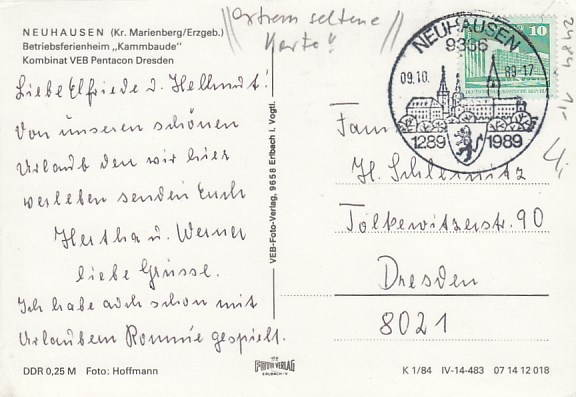 NEUHAUSEN (Kr. Marienberg/Erzgeb.)
Betriebsferienheim „Kammbaude"
Kombinat VEB Pentacon Dresden
extrem seltene
Karte!
NEUHAUSEN
9356
09.10. 89-17
1289 1989
10
Liebe Elfriede u. Hellmut!
Von unseren schönen
Urlaub den wir hier
verleben senden Euch
Hertha u. Werner
liebe Grüsse.
Ich habe auch schon mit
Urlaubern Rommie gespielt.
VEB-Foto-Verlag, 9658 Erlbach i. Vogtl.
Fam
H.
Tolkewitzerstr. 90
Dresden
8021
DDR 0,25 M Foto: Hoffmann
FOTO VERLAG
ERLBACH-V.
K 1/84 IV-14-483 07 14 12 018